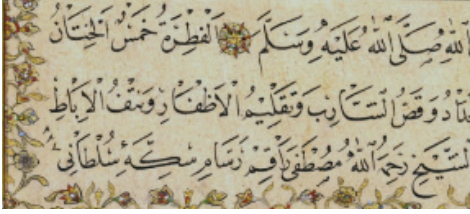 الله صلى الله عليه وسلم الفطرة خمس الختان
وقص الشارب وتقليم الأظفار ونتف الآباط
رحمه الله مصطفى راقم رسام سكه سلطاني